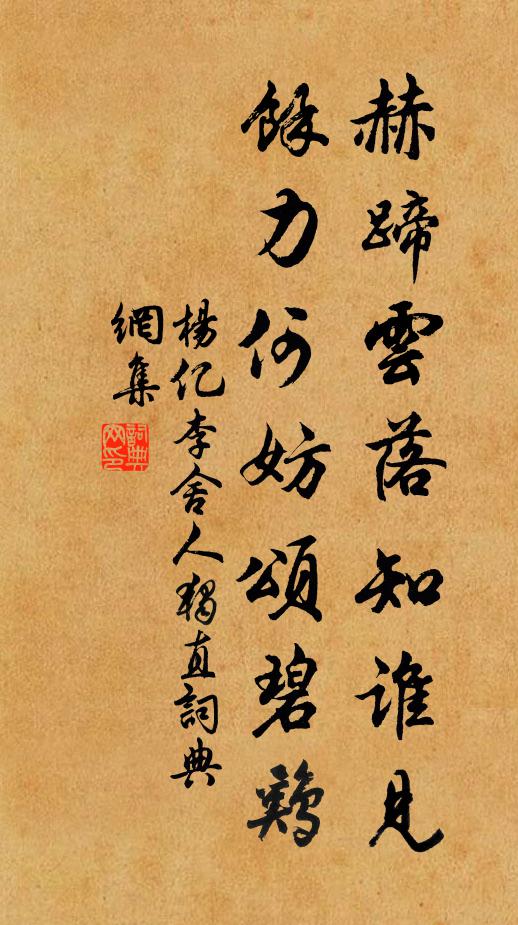 赫蹄雲落知誰見
餘力何妨頌碧鷄
楊亿李舍人獨直詞典
網集
詞典
网印